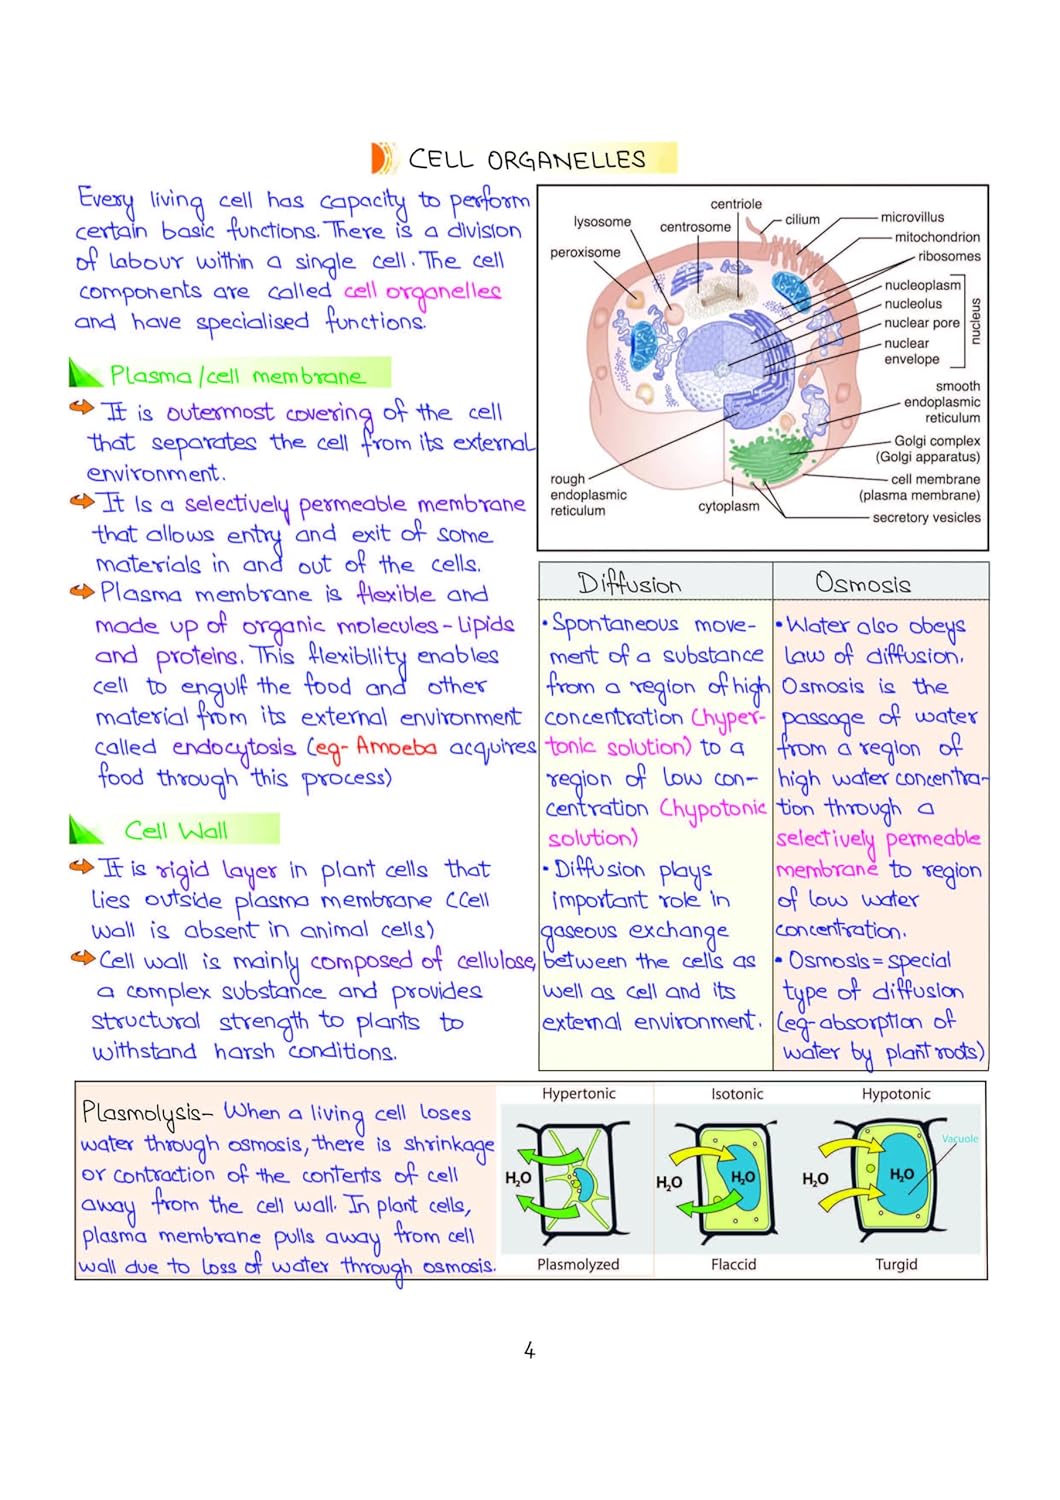 CELL ORGANELLES
Every living cell has capacity to perform
certain basic functions. There is a division
of labour within a single cell. The cell
components are called cell organelles
and have specialised functions.
Plasma/cell membrane
It is outermost covering of the cell
that separates the cell from its external
environment.
It Is a selectively permeable membrane
that allows entry and exit of some
materials in and out of the cells.
Plasma membrane is flexible and
made up of organic molecules - Lipids
and proteins. This flexibility enables
cell to engulf the food and other
material from its external environment
called endocytosis (eg- Amoeba acquires
food through this process)
Cell Wall
It is rigid layer in plant cells that
lies outside plasma membrane (Cell
wall is absent in animal cells)
Cell wall is mainly composed of cellulose,
a complex substance and provides
structural strength to plants to
withstand harsh conditions.
centriole
lysosome
centrosome
cilium
microvillus
peroxisome
mitochondrion
ribosomes
nucleoplasm
nucleolus
nuclear pore
nuclear
envelope
nucleus
smooth
endoplasmic
reticulum
Golgi complex
(Golgi apparatus)
cell membrane
(plasma membrane)
secretory vesicles
cytoplasm
rough
endoplasmic
reticulum
Diffusion
• Spontaneous move-
ment of a substance
from a region of high
concentration (hyper-
tonic solution) to a
region of low con-
centration (hypotonic
solution)
• Diffusion plays
important role in
gaseous exchange
between the cells as
well as cell and its
external environment.
Osmosis
• Water also obeys
law of diffusion.
Osmosis is the
passage of water
from a region of
high water concentra-
tion through a
selectively permeable
membrane to region
of low water
concentration.
• Osmosis = special
type of diffusion
(eg- absorption of
water by plant roots)
Plasmolysis- When a living cell loses
water through osmosis, there is shrinkage
or contraction of the contents of cell
away from the cell wall. In plant cells,
plasma membrane pulls away from cell
wall due to loss of water through osmosis.
Hypertonic
Isotonic
Hypotonic
H₂O
H₂O
H₂O
H₂O
H₂O
Vacuole
Plasmolyzed
Flaccid
Turgid
4